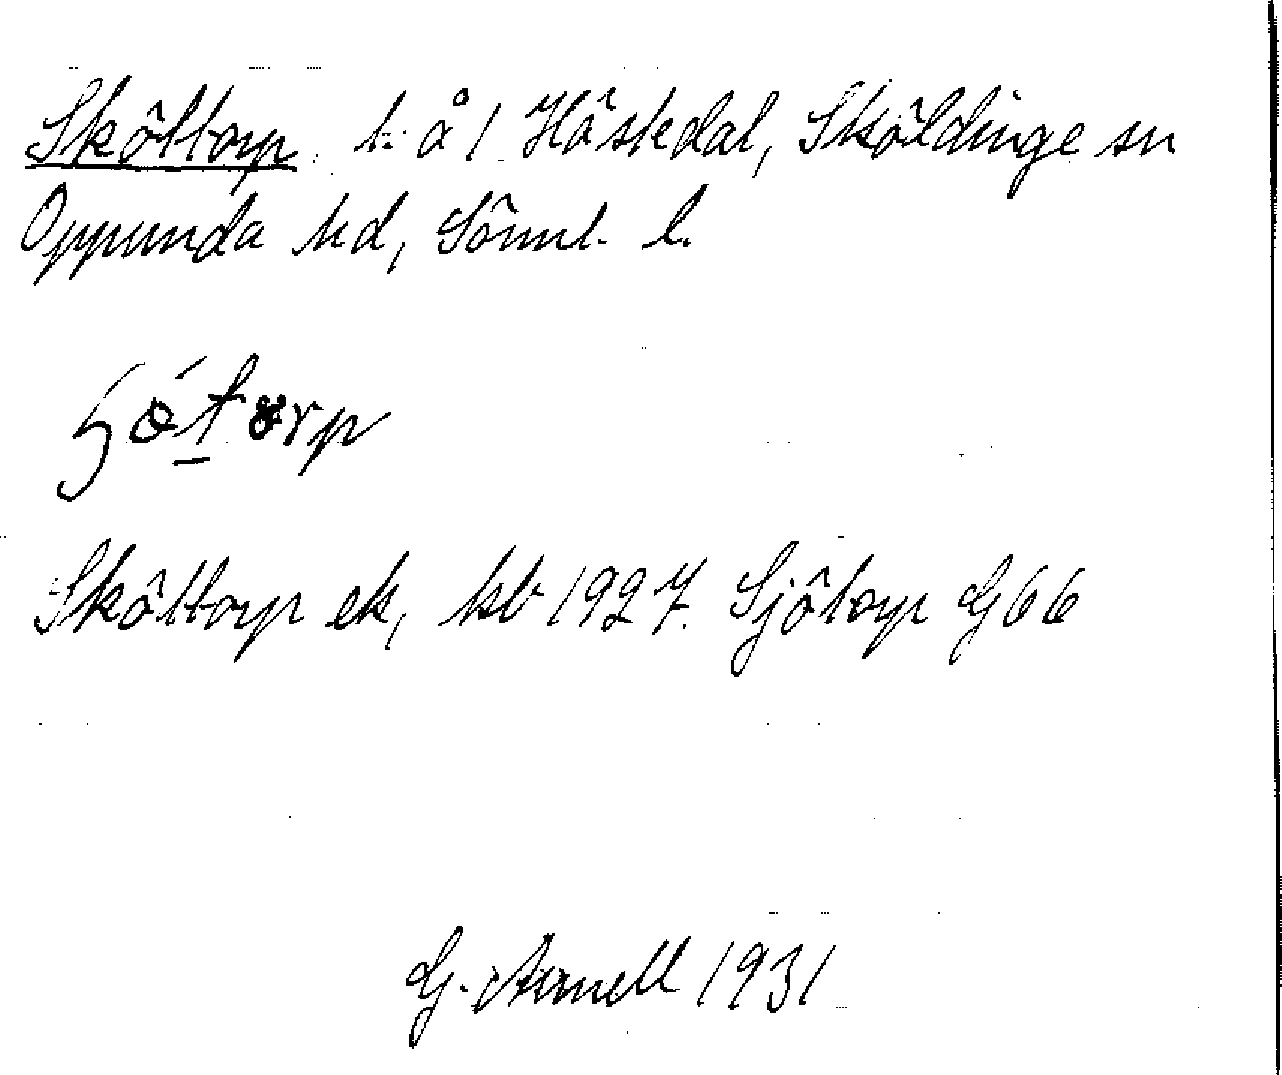 Sköttorp t. å 1 Hästedal, Sköldinge sn
Oppunda hd, Söml. l.
Sköttorp ek, kb 1927. Sjötorp G66
G. Arnell 1931